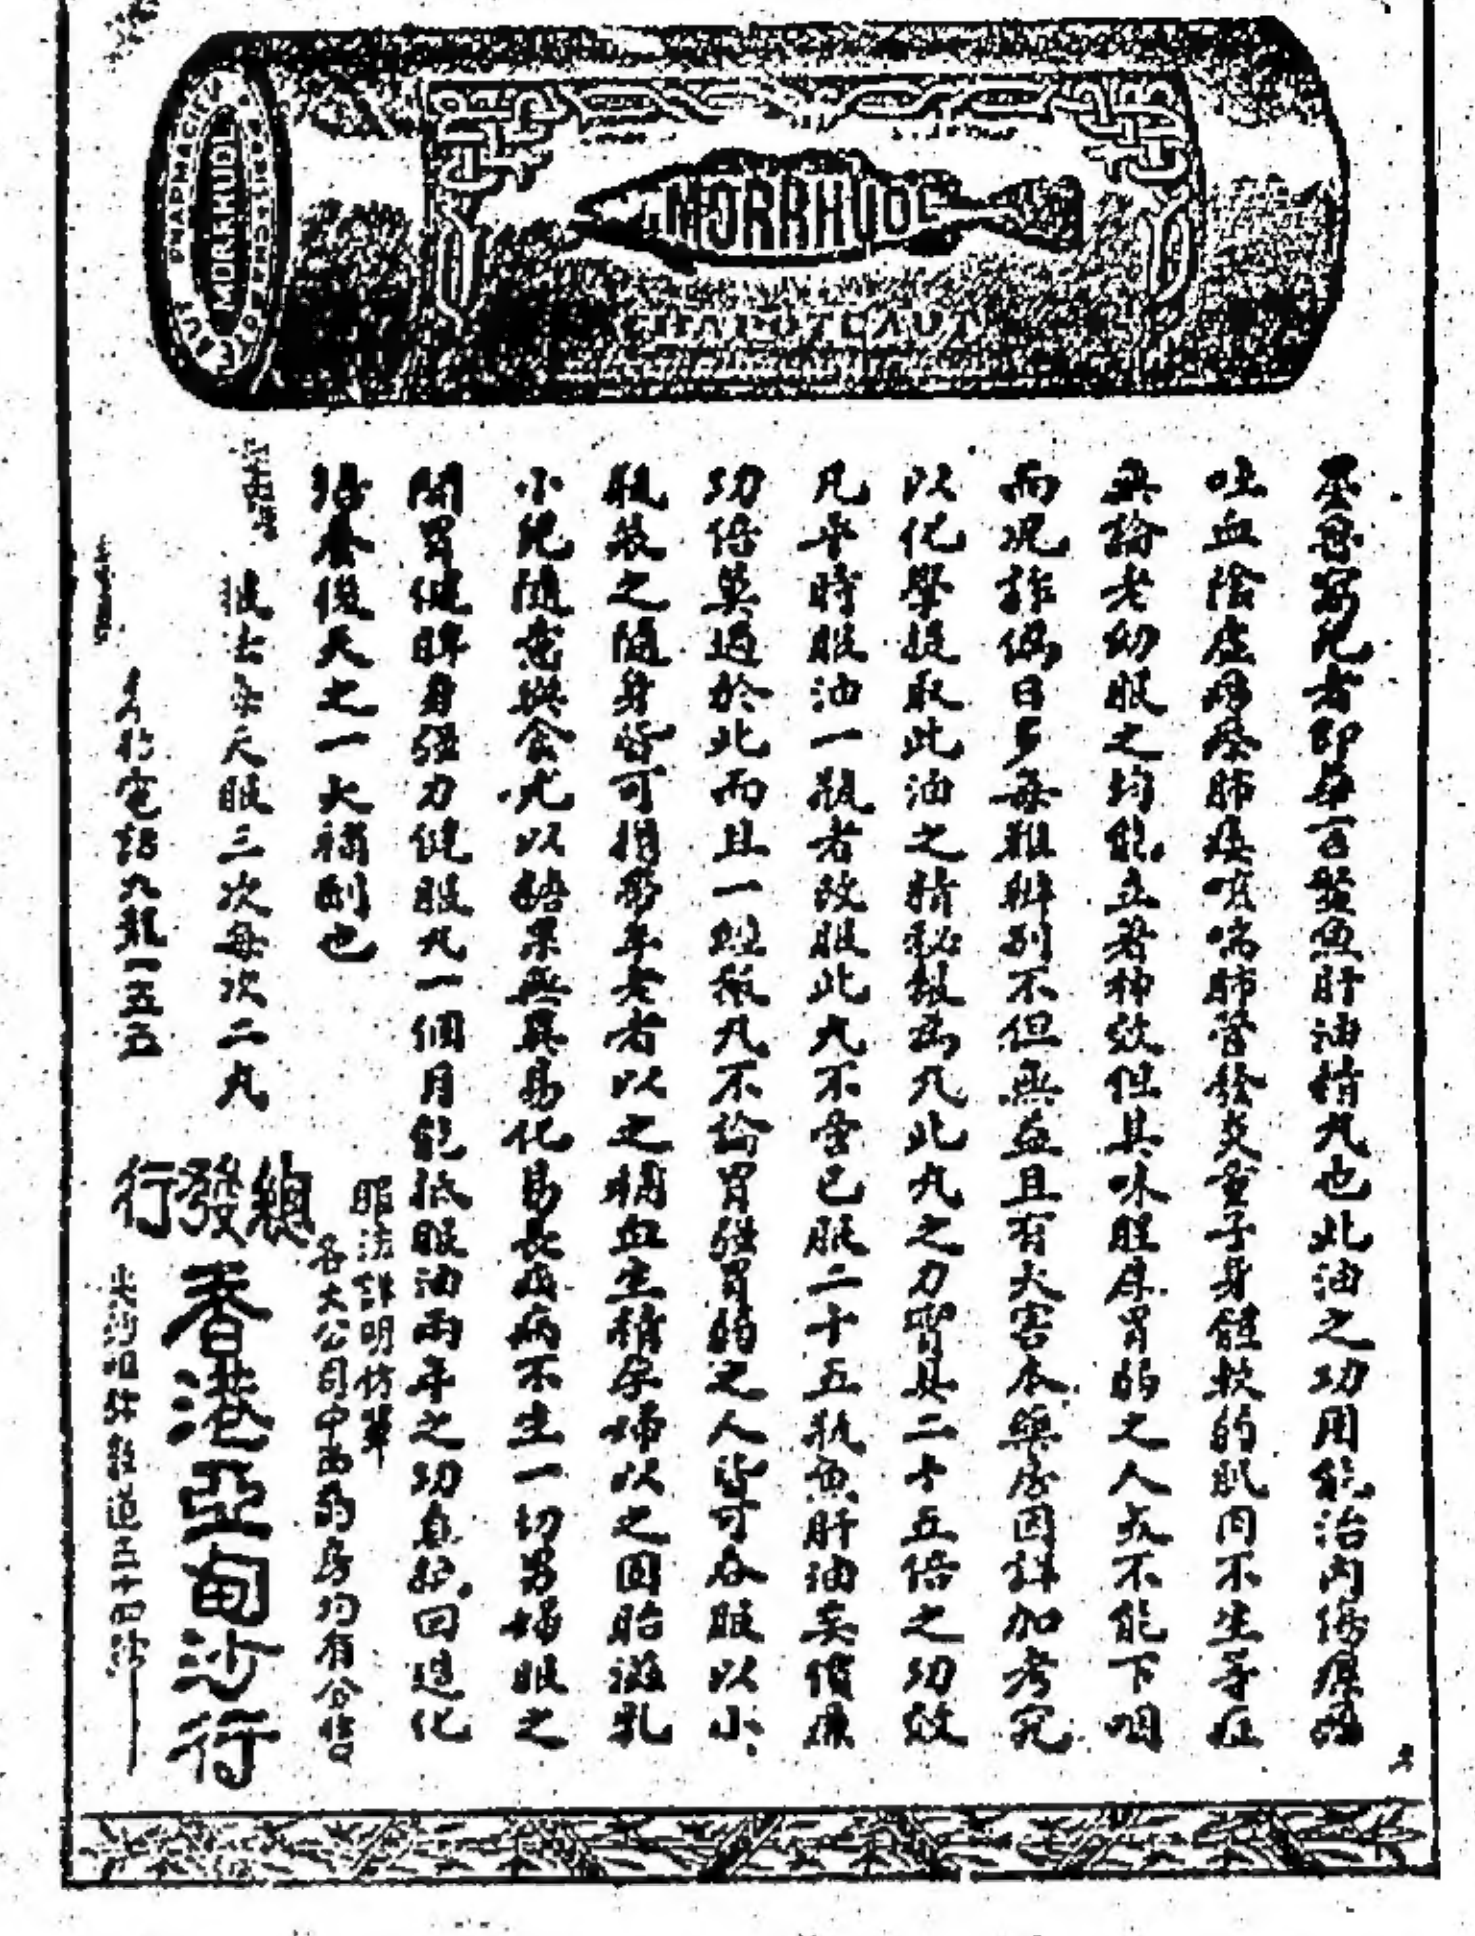 PHARMACIEN
MORRHUOL
MORRHUOL
CHAPOTEAUT
者即華言鰵魚肝油精丸也此油之功用能治內傷
吐血陰虛癆瘵肺痿咳喘肺管發炎童子身體軟弱肌肉不生等症
無論老幼服之均能立著神效但其味腥厚胃弱之人或不能下咽
而況詐偽日多每難辨別不但無益且有大害本藥房因詳加考究
以化學提取此油之精秘製為丸此丸之力實具二十五倍之功效
凡平時服油一瓶者改服此丸不啻已服二十五瓶魚肝油矣價廉
功倍莫過於此而且一經服丸不論胃強胃弱之人皆可吞服以小
瓶裝之隨身皆可攜帶年老者以之補血生精孕婦以之固胎滋乳
小兒隨意與食尤以糖果無異易化易長成病不生一切男婦服之
開胃健脾身強力健服丸一個月能抵服油兩年之功真能回造化
培養後天之一大補劑也
服法每天服三次每次二丸
服法詳明仿單
各大公司中西葯房均有分售
總發行
香港亞甸沙行
電話九龍一五五